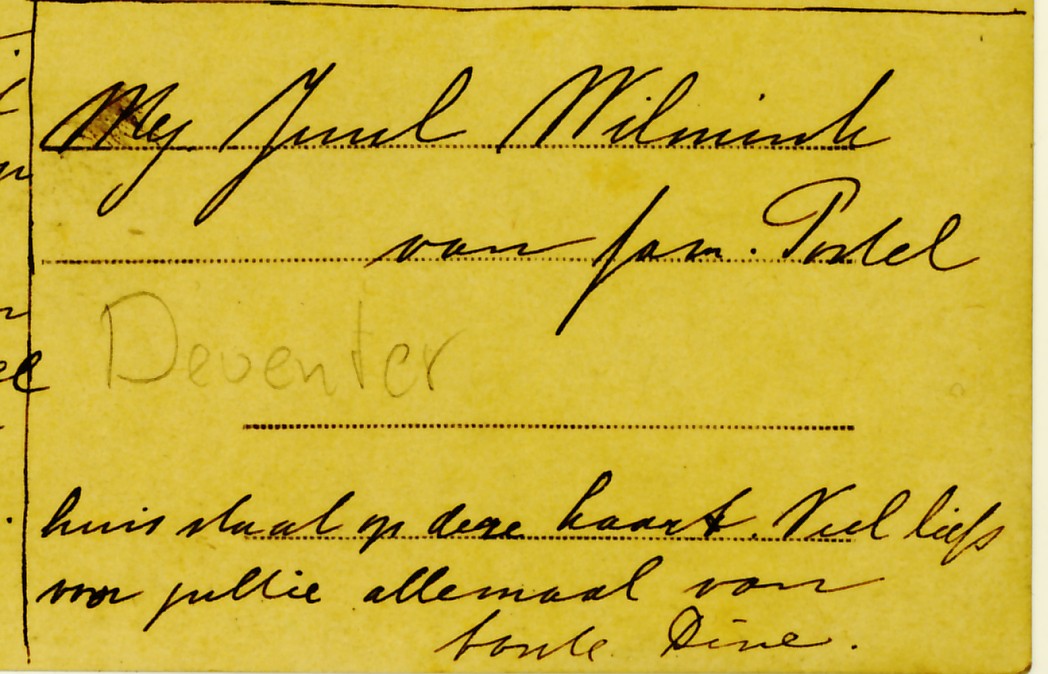 Mej. Juul Wilmink
van fam. Postel
Deventer
huis staat op deze kaart. Veel liefs
voor jullie allemaal van
tante Dine.